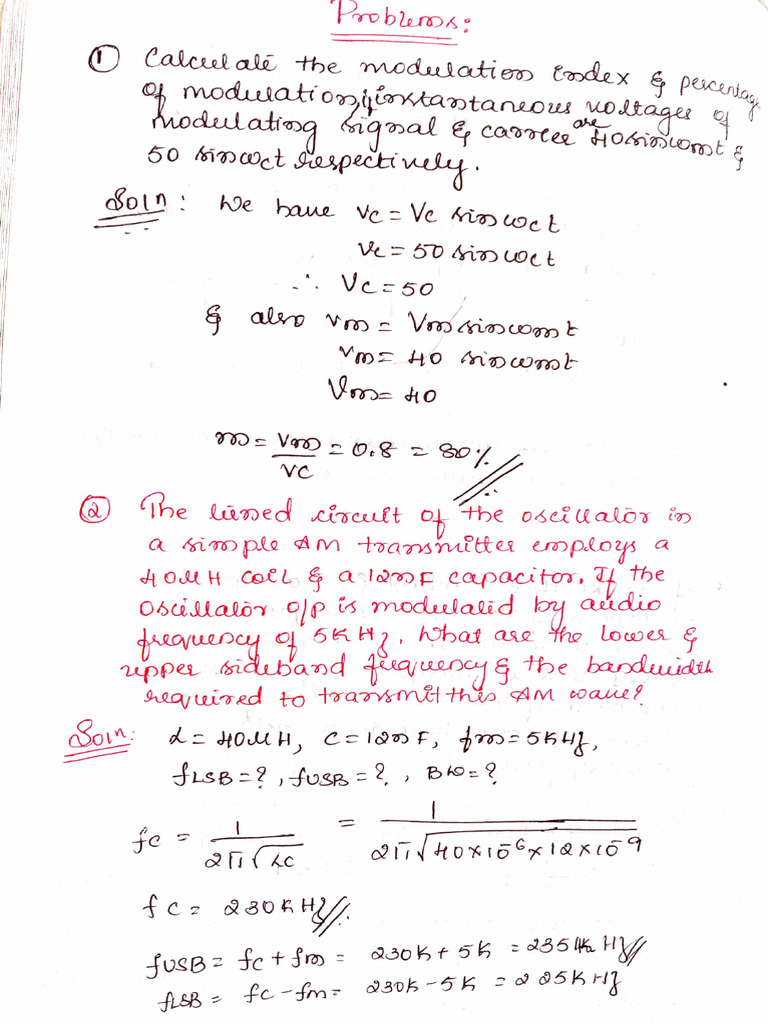 Problems:
① Calculate the modulation index & percentage
of modulation, if instantaneous voltages of
modulating signal & carrier are 40 sin ωmt &
50 sin ωct respectively.
Soln: We have vc = Vc sin ωct
vc = 50 sin ωct
∴ Vc = 50
& also vm = Vm sin ωmt
vm = 40 sin ωmt
Vm = 40
m = Vm/Vc = 0.8 = 80%
② The tuned circuit of the oscillator in
a simple AM transmitter employs a
40μH coil & a 12nF capacitor. If the
oscillator o/p is modulated by audio
frequency of 5KHz, What are the lower &
upper sideband frequency & the bandwidth
required to transmit this AM wave?
Soln: L = 40μH, C = 12nF, fm = 5KHz,
fLSB = ?, fUSB = ?, BW = ?
fc = 1/2π√LC = 1/2π√40×10⁻⁶×12×10⁻⁹
fc = 230KHz
fUSB = fc + fm = 230K + 5K = 235KHz
fLSB = fc - fm = 230K - 5K = 225KHz